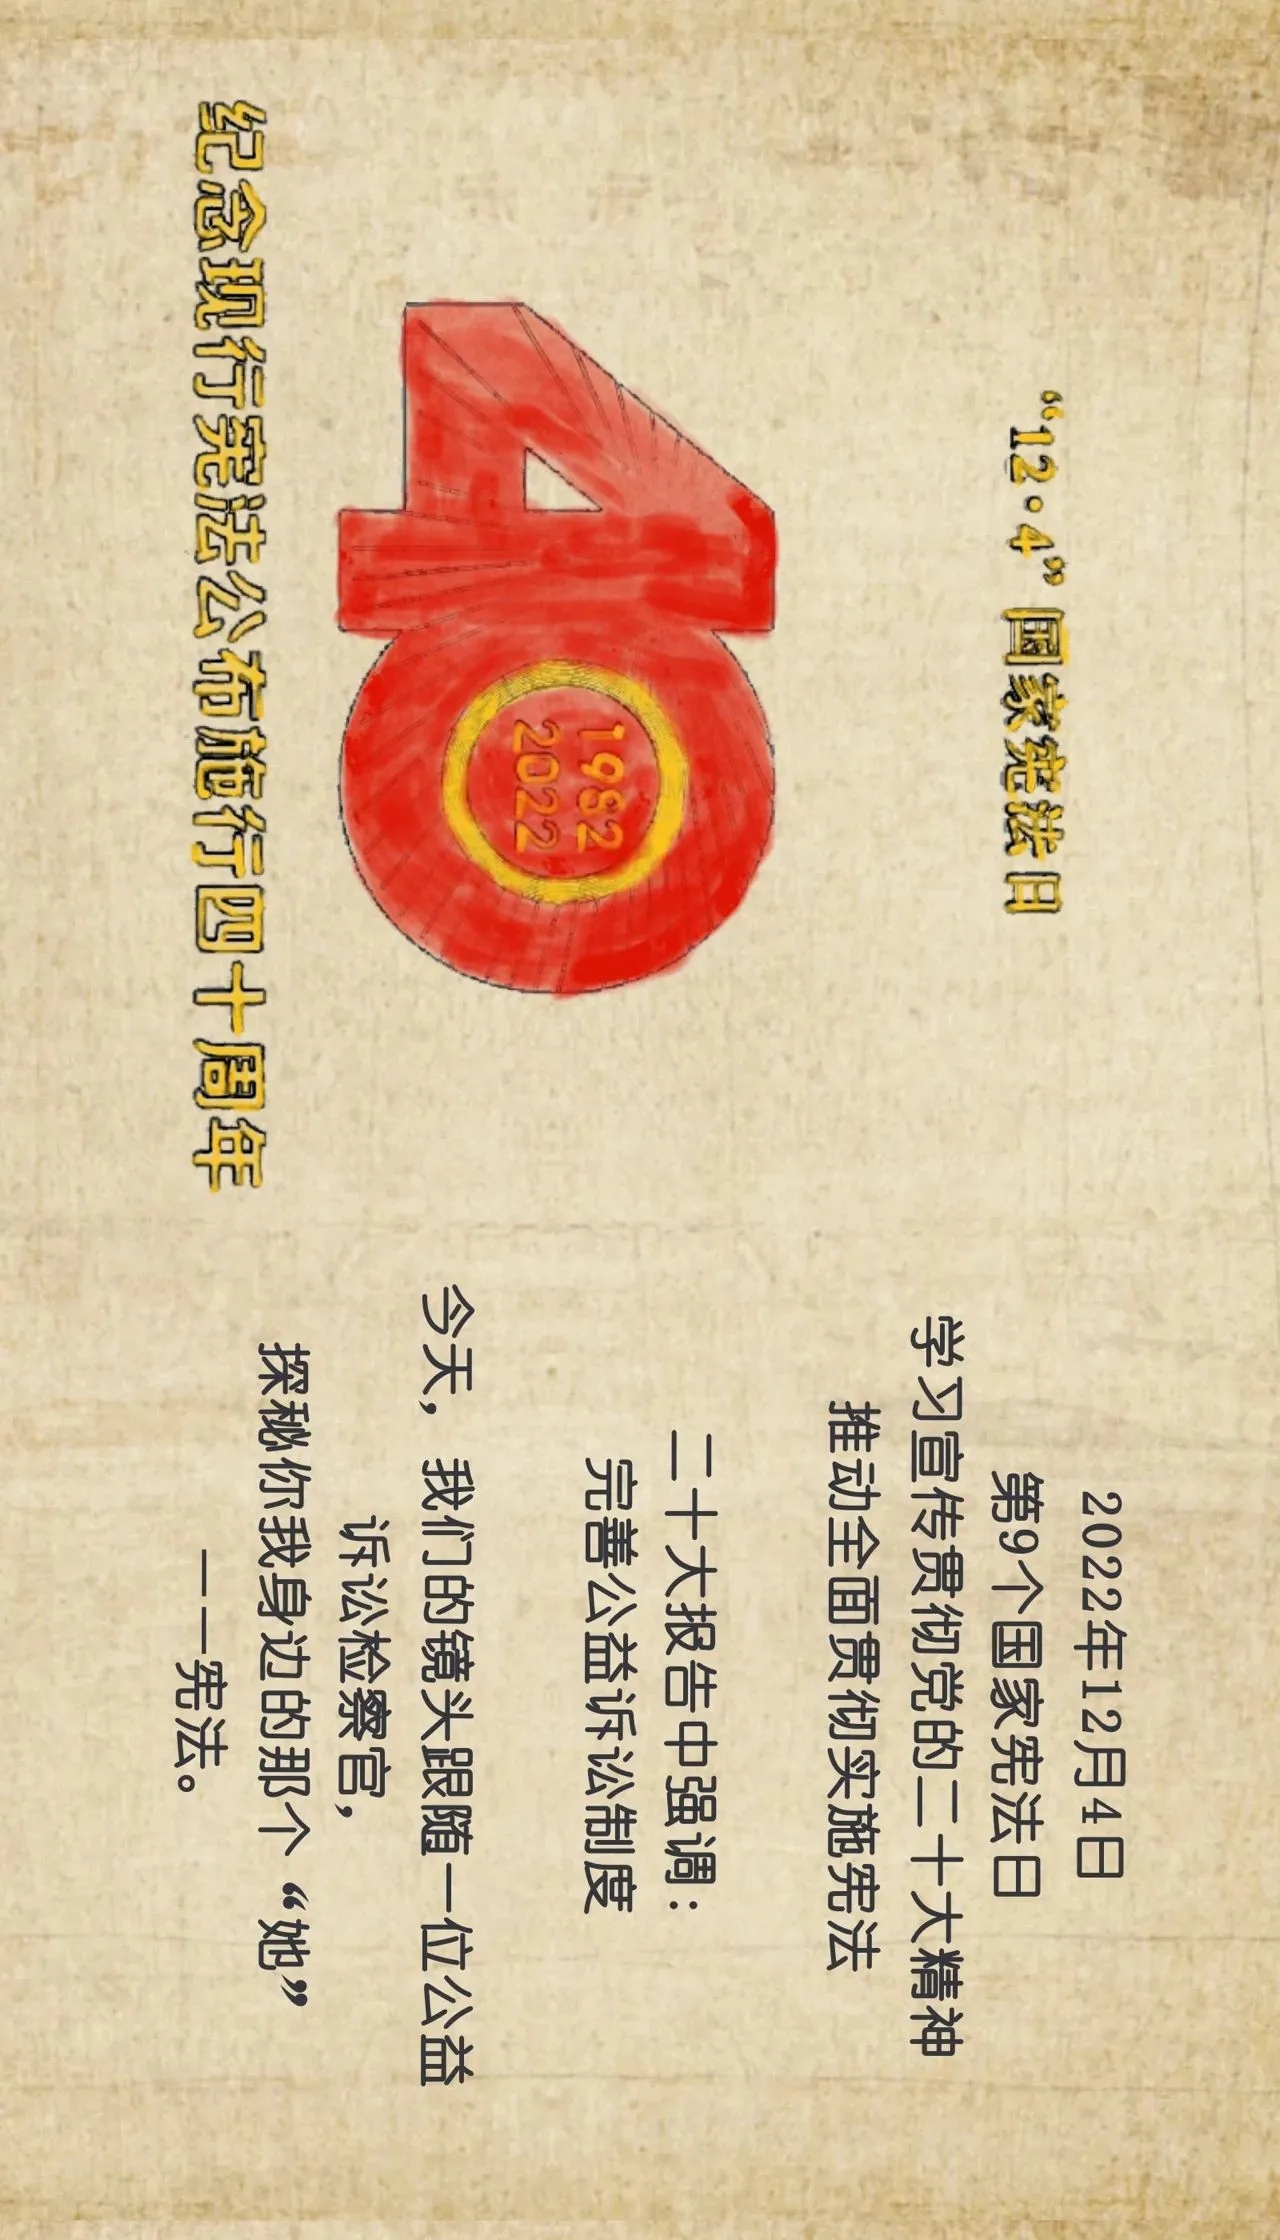 “12·4”国家宪法日
40
1982
2022
纪念现行宪法公布施行四十周年
2022年12月4日
第9个国家宪法日
学习宣传贯彻党的二十大精神
推动全面贯彻实施宪法
二十大报告中强调：
完善公益诉讼制度
今天，我们的镜头跟随一位公益
诉讼检察官，
探秘你我身边的那个“她”
——宪法。